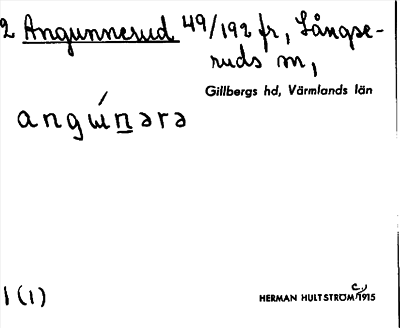 2 Angunnerud 49/192 fr, Långse-
ruds m,
Gillbergs hd, Värmlands län
angɯ́nərə
1 (1)
HERMAN HULTSTRÖM 1915